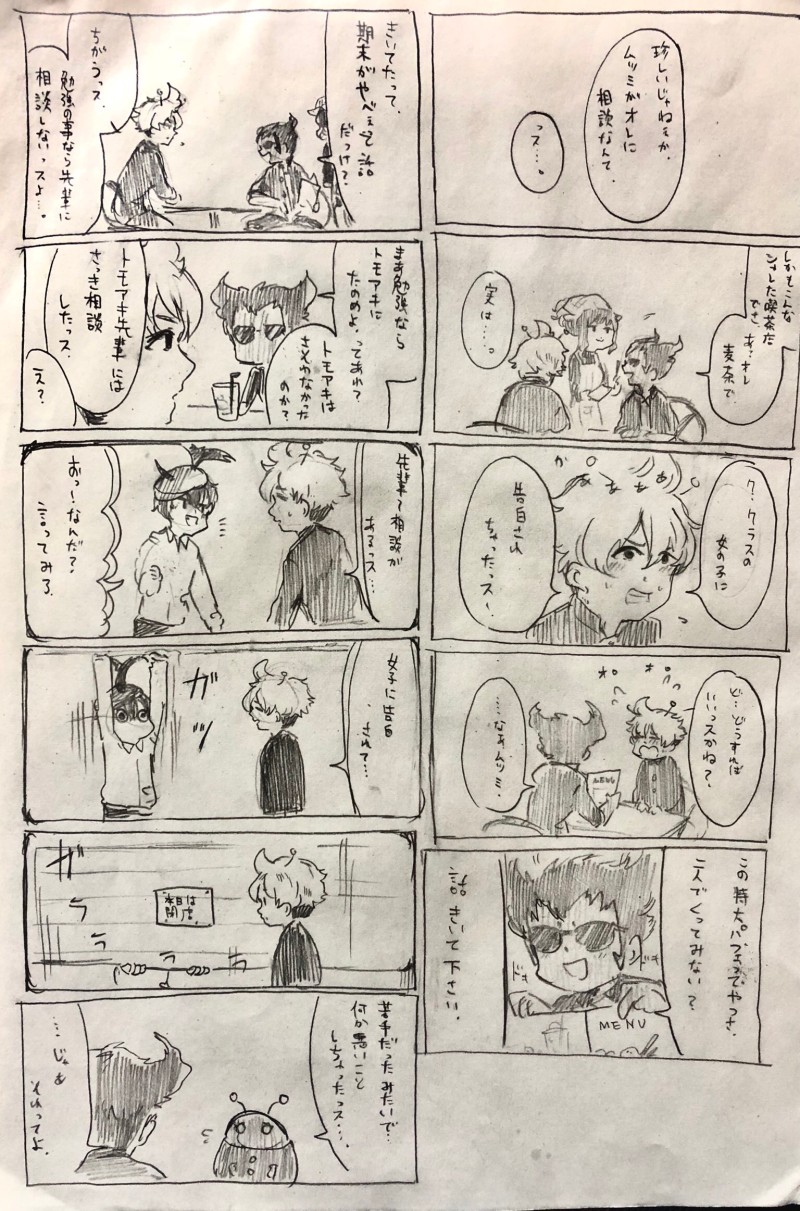 珍しいじゃねぇか、
ムツミがオレに
相談なんて。
っス…。
しかもこんな
シャレした喫茶店
でさ。あ、オレ
麦茶で。
実は…。
ク…クラスの
女の子に
告白され
ちゃったっス〜
かぁぁぁぁ
ど…どうすれば
いいっスかね？
オロオロ
…なぁムツミ、
MENU
この特大パフェってやつさ、
二人でくってみない？
ドキ
ドキ
MENU
話きいて下さい。
きいてたって、
期末がやべぇって話
だっけ？
ちがうっス
勉強の事なら先輩に
相談しないっスよ…。
まあ勉強なら
トモアキに
たのめよ、ってあれ？
トモアキは
さそわなかった
のか？
トモアキ先輩には
さっき相談
したっス。
え？
先輩て相談が
あるっス…
おっ！なんだ？
言ってみろ
女子に告白
されて…
ガッ
ガラララ
本日は
閉店
苦手だったみたいで…
何か悪いこと
しちゃったっス…。
…じゃあ
それってよ、